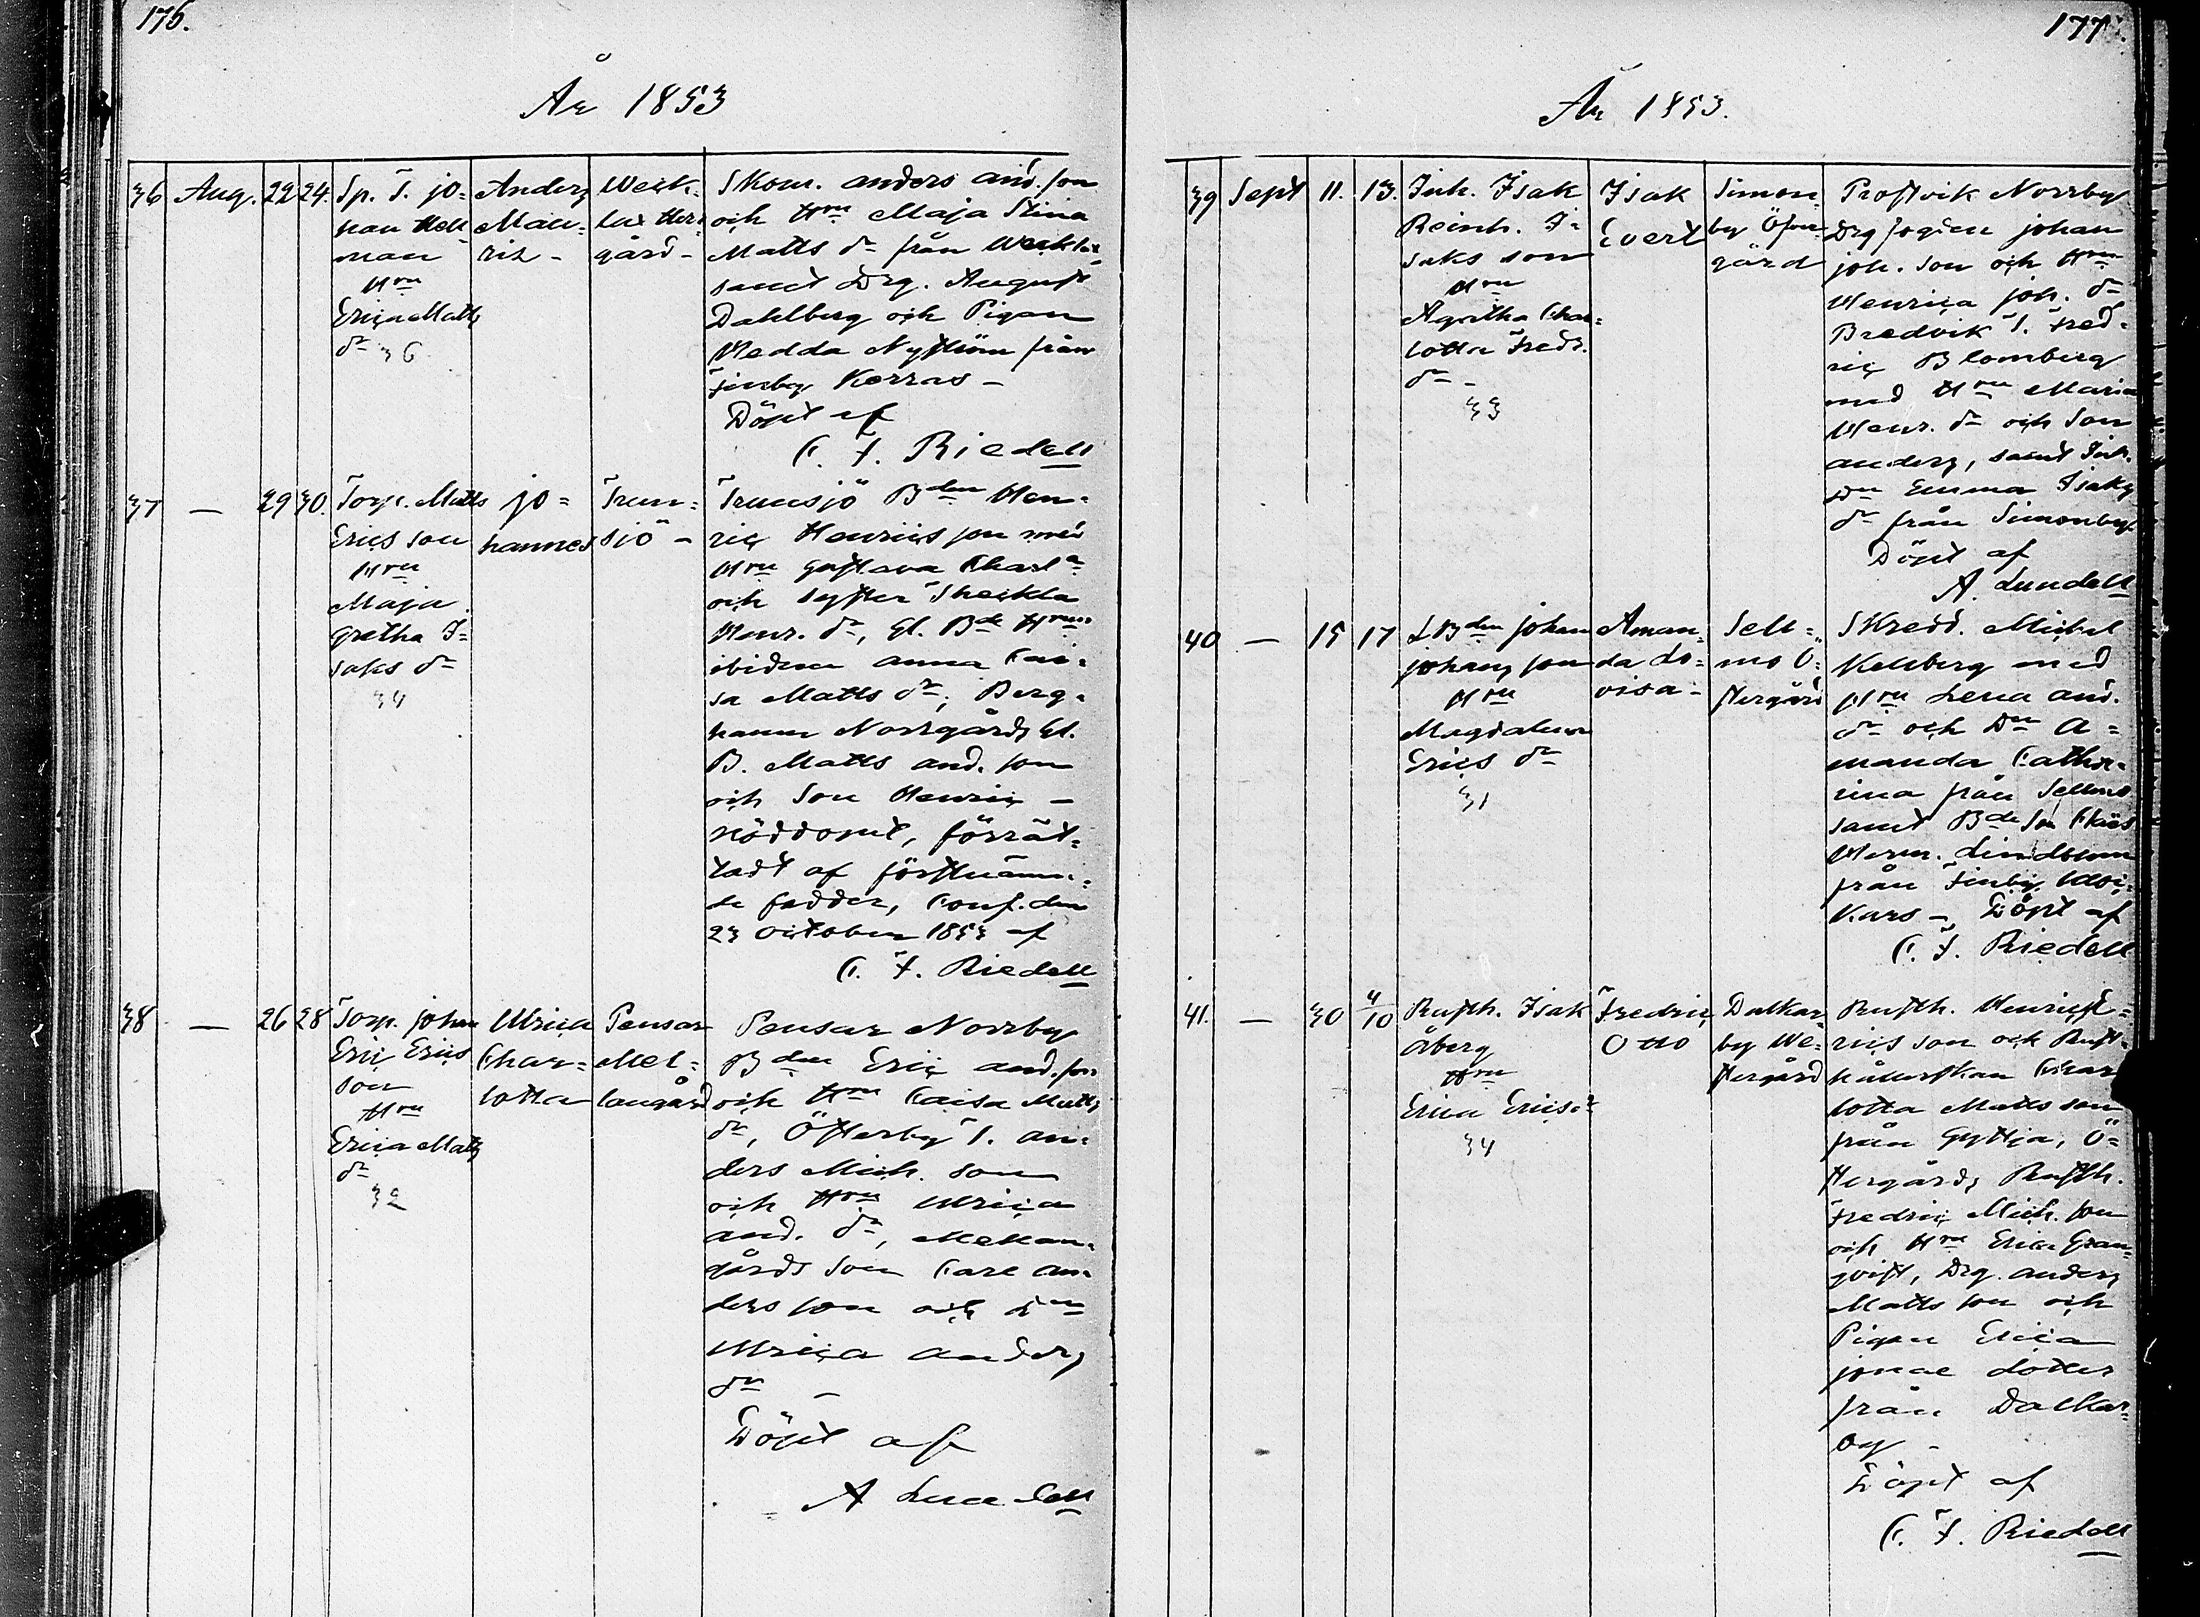 176.
År 1853
36 Aug. 22 24.
Sp. T. jo=
han Hell
man
Hru
Erica Matts
dr 36
Anders
Mau=
ritz -
gård -
Skom. anders and. son
och Hru Maja Stina
Matts dr från
samt Drg. August
Dahlberg och Pigan
Hedda Nyström från
Finby Korras -
Döpt af
C. F. Riedell
37 - 29 30.
Torp. Matts
Erics son
Hru
Maja
gretha I=
saks dr
34
jo=
hannes
Trun=
sjö -
Trunsjö Bden Hen=
ric Henrics son med
Hru gustava Charla
och syster Theckla
Henr. dr, Gl. Bde Hrun
ibidem anna Cai=
sa Matts dr; Berg=
hamn Norrgårds Gl.
B. Matts and. son
och Son Henric -
Nöddopet, förrät=
tadt af förstnämn=
de fadder, Conf. den
23 october 1853 af
C. F. Riedell
38 - 26 28
Torp. johan
Eric Erics
son
Hru
Erica Matts
dr
32
Ulrica
Char=
lotta
Pensar
Mel=
langård
Pensar Norrby
Bden Eric and. son
och Hru Caisa Matts
dr, Österby T. an=
ders Mich. son
och Hru Ulrica
and. dr, Mellan=
gårds Son Carl an=
ders son och Dn
Ulrica anders
dr -
Döpt af
A Lundell
177.
År 1853.
39 Sept 11. 13.
Inh. Isak
Reinh. I=
saks son
Hru
Agatha Char=
lotta Fredr.
dr -
33
Isak
Evert
Simon=
by Öfver
gård
Prostvik Norrby
Drg fogden johan
joh. son och Hru
Henrica joh. dr
Bredvik T. Fred=
ric Blomberg
med Hru Maria
Henr. dr och Son
anders, samt Inh.
Dn Emma Isaks
dr från Simonby
Döpt af
A. Lundell
40 - 15 17
LBden johan
johans son
Hru
Magdalena
Erics dr
31
Aman=
da Lo=
visa -
Sell=
mo Ö=
stergård
Skredd. Michel
Kellberg med
Hru Lena and.
dr och Dn A=
manda Catha=
rina från Sellmo
samt Bde Son Claes
Herm. Lindblom
från Finby
Kars - Döpt af
C. F. Riedell
41. - 30 4/10
Rusth. Isak
Åberg
Hru
Erica Ericsdr
34
Fredric
Otto
Dalkar=
by We=
stergård
Rusth. Henric
rics son och Rust=
hållerskan Char
lotta Matts son
från Gyttja, Ö=
stergårds Rusth.
Fredric Mich. son
och Hru Erica Gran=
qvist, Drg. anders
Matts son och
Pigan Erica
jonae dotter
från Dalkar=
by -
Döpt af
C. F. Riedell